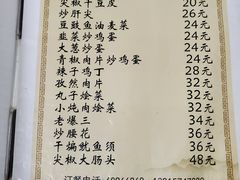 尖椒干豆皮 20元
炒肝尖 26元
豆豉鱼油麦菜 24元
韭菜炒鸡蛋 24元
大葱炒蛋 24元
青椒肉片炒鸡蛋 24元
辣子鸡丁 28元
孜然肉片 32元
丸子烩菜 32元
小炖肉烩菜 32元
老爆三 34元
炒腰花 36元
干煸鱿鱼须 36元
尖椒大肠头 48元
订餐电话